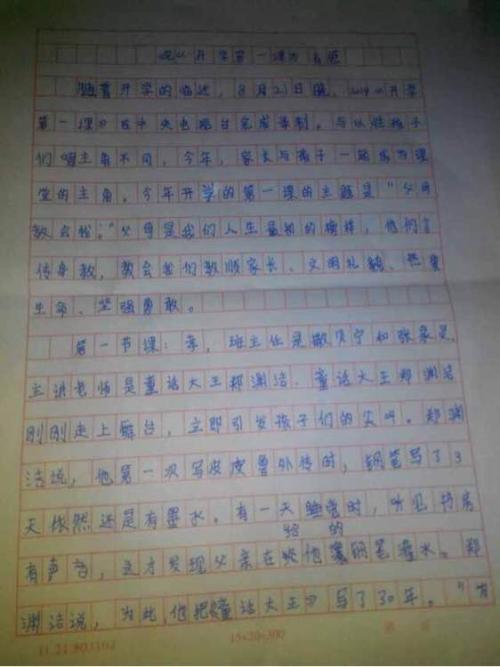 观《开学第一课》有感
随着开学的临近，8月23日晚，2014《开学
第一课》在中央电视台完成录制。与以往孩子
们唱主角不同，今年，家长与孩子一起成为课
堂的主角。今年开学的第一课的主题是“父母
教会我。”父母是我们人生最初的榜样，他们言
传身教，教会我们孝顺家长、文明礼貌、热爱
生命、坚强勇敢。
第一节课：孝，班主任是撒贝宁和张泉灵，
主讲老师是童话大王郑渊洁。童话大王郑渊洁
刚刚走上舞台，立即引发孩子们的尖叫。郑渊
洁说，他第一次写皮皮鲁外传时，钢笔写了3
天依然还是有墨水。有一天睡觉时，听见书房
有声音，这才发现父亲在给他的钢笔灌水。郑
渊洁说，为此，他把《童话大王》写了30年。“有
15×20=300